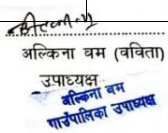 अल्किना बम (वविता)
उपाध्यक्ष
अल्किना बम
गाउँपालिका उपाध्यक्ष